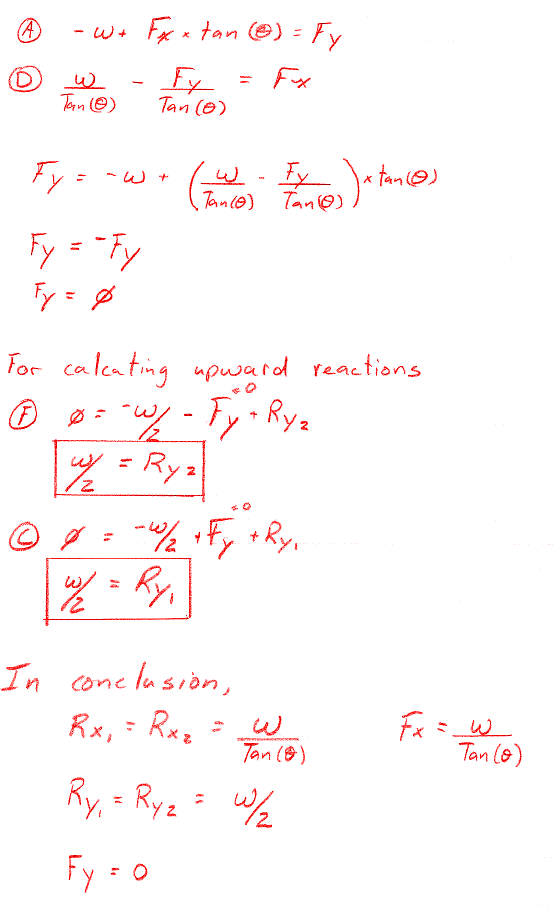 Ⓐ -w + Fx × tan(θ) = Fy
Ⓓ w/Tan(θ) - Fy/Tan(θ) = Fx
Fy = -w + (w/Tan(θ) - Fy/Tan(θ)) × tan(θ)
Fy = -Fy
Fy = ø
For calcating upward reactions
Ⓕ ø = -w/2 - Fy^{=0} + Ry₂
w/2 = Ry₂
Ⓒ ø = -w/2 + Fy^{=0} + Ry₁
w/2 = Ry₁
In conclusion,
Rx₁ = Rx₂ = w/Tan(θ) Fx = w/Tan(θ)
Ry₁ = Ry₂ = w/2
Fy = 0